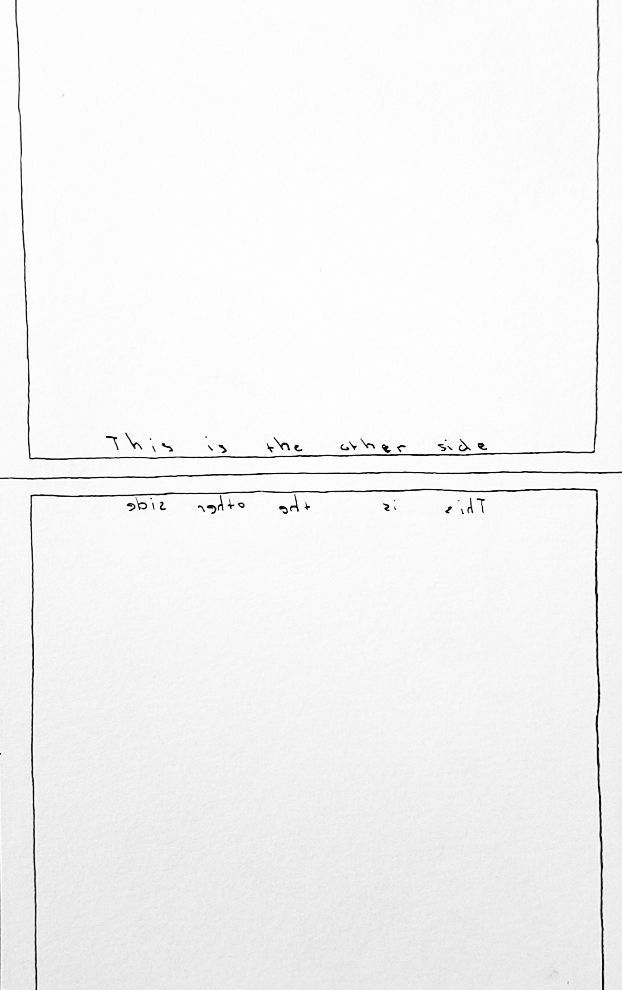 This is the other side
This is the other side